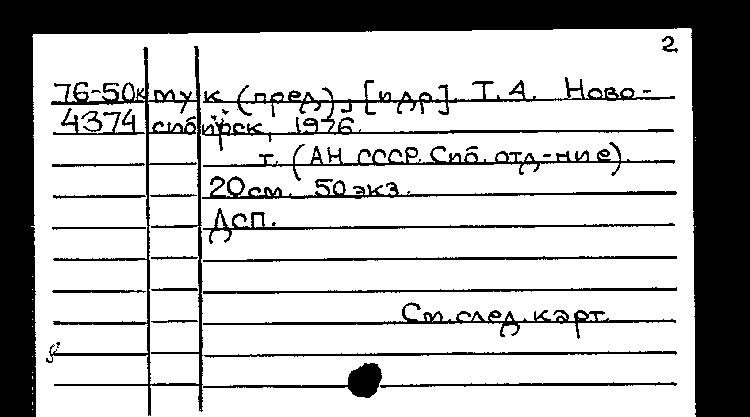 2
76-50к мук (пред), [и др]. Т. 4. Ново-
4374 сибирск, 1976.
т. (АН СССР. Сиб. отд-ние).
20см. 50 экз.
Дсп.
См. след. карт.